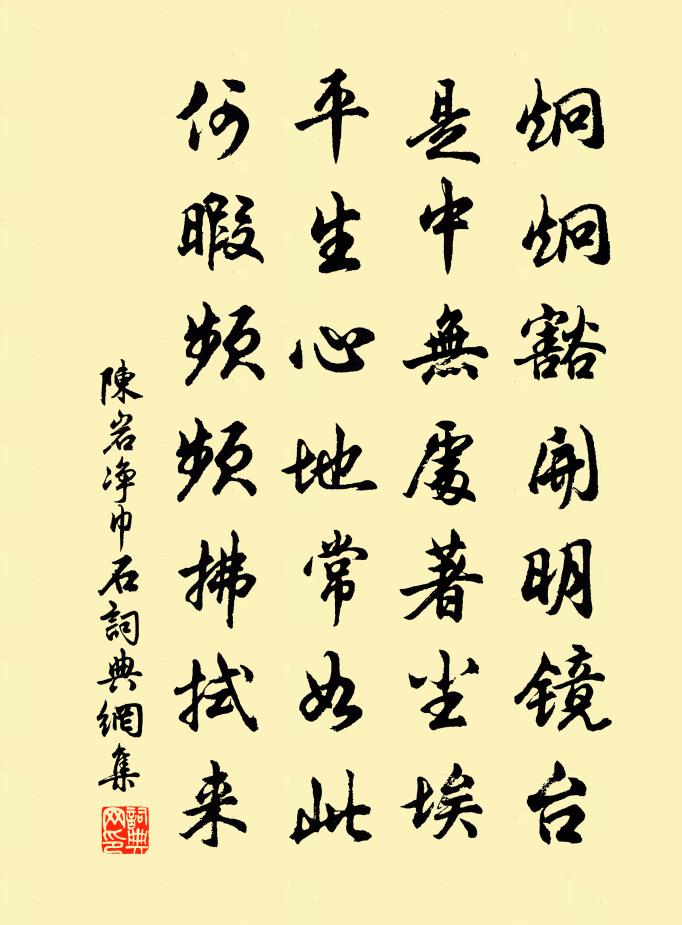 炯炯豁開明镜台
是中無處著尘埃
平生心地常如此
何暇频频拂拭来
陳岩净巾石詞典網集
詞典网印